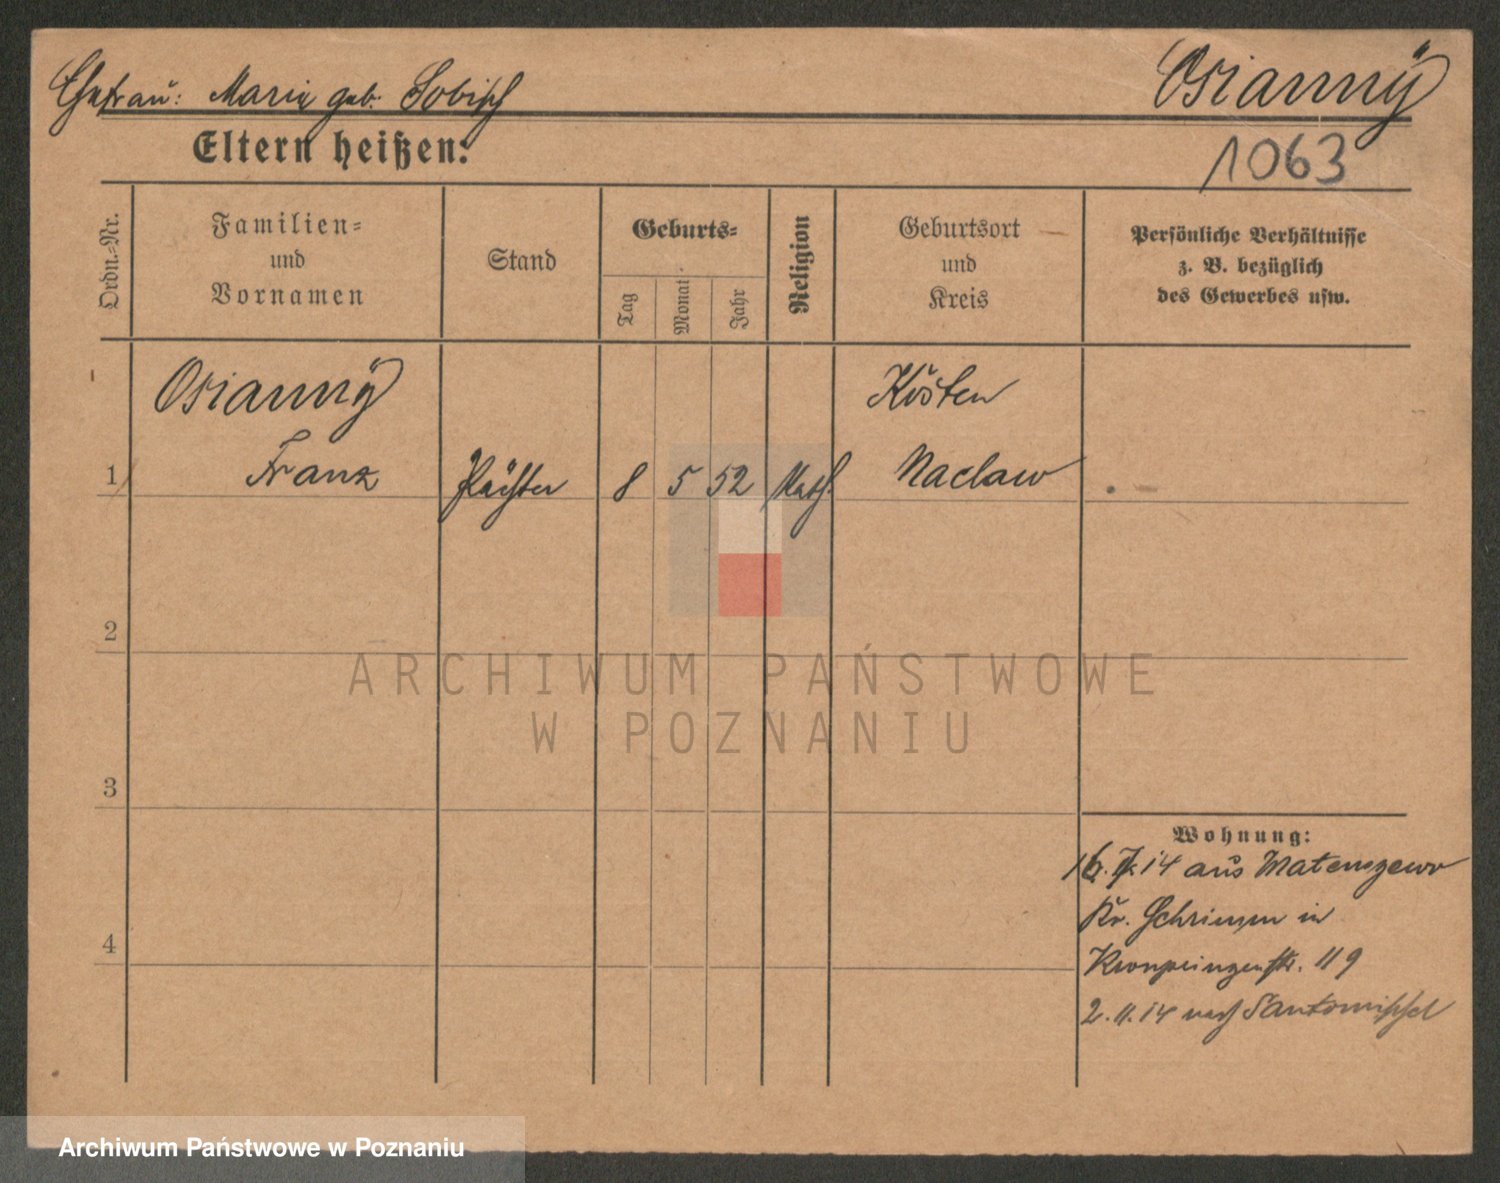 Ehefrau: Marie geb. Sobisch
Osiannÿ
Eltern heißen:
1063
Ordn.-Nr.
Familien-
und
Vornamen
Stand
Geburts-
Tag
Monat
Jahr
Religion
Geburtsort
und
Kreis
Persönliche Verhältnisse
z. B. bezüglich
des Gewerbes usw.
Osiannÿ
Kosten
1 Franz Pächter 8 5 52 Kath. Naclaw
2
ARCHIWUM PAŃSTWOWE
W POZNANIU
3
Wohnung:
16. 7. 14 aus
Kr. Schrimm in
4
Kronprinzenstr. 119
2. 11. 14 nach Santomischel
Archiwum Państwowe w Poznaniu